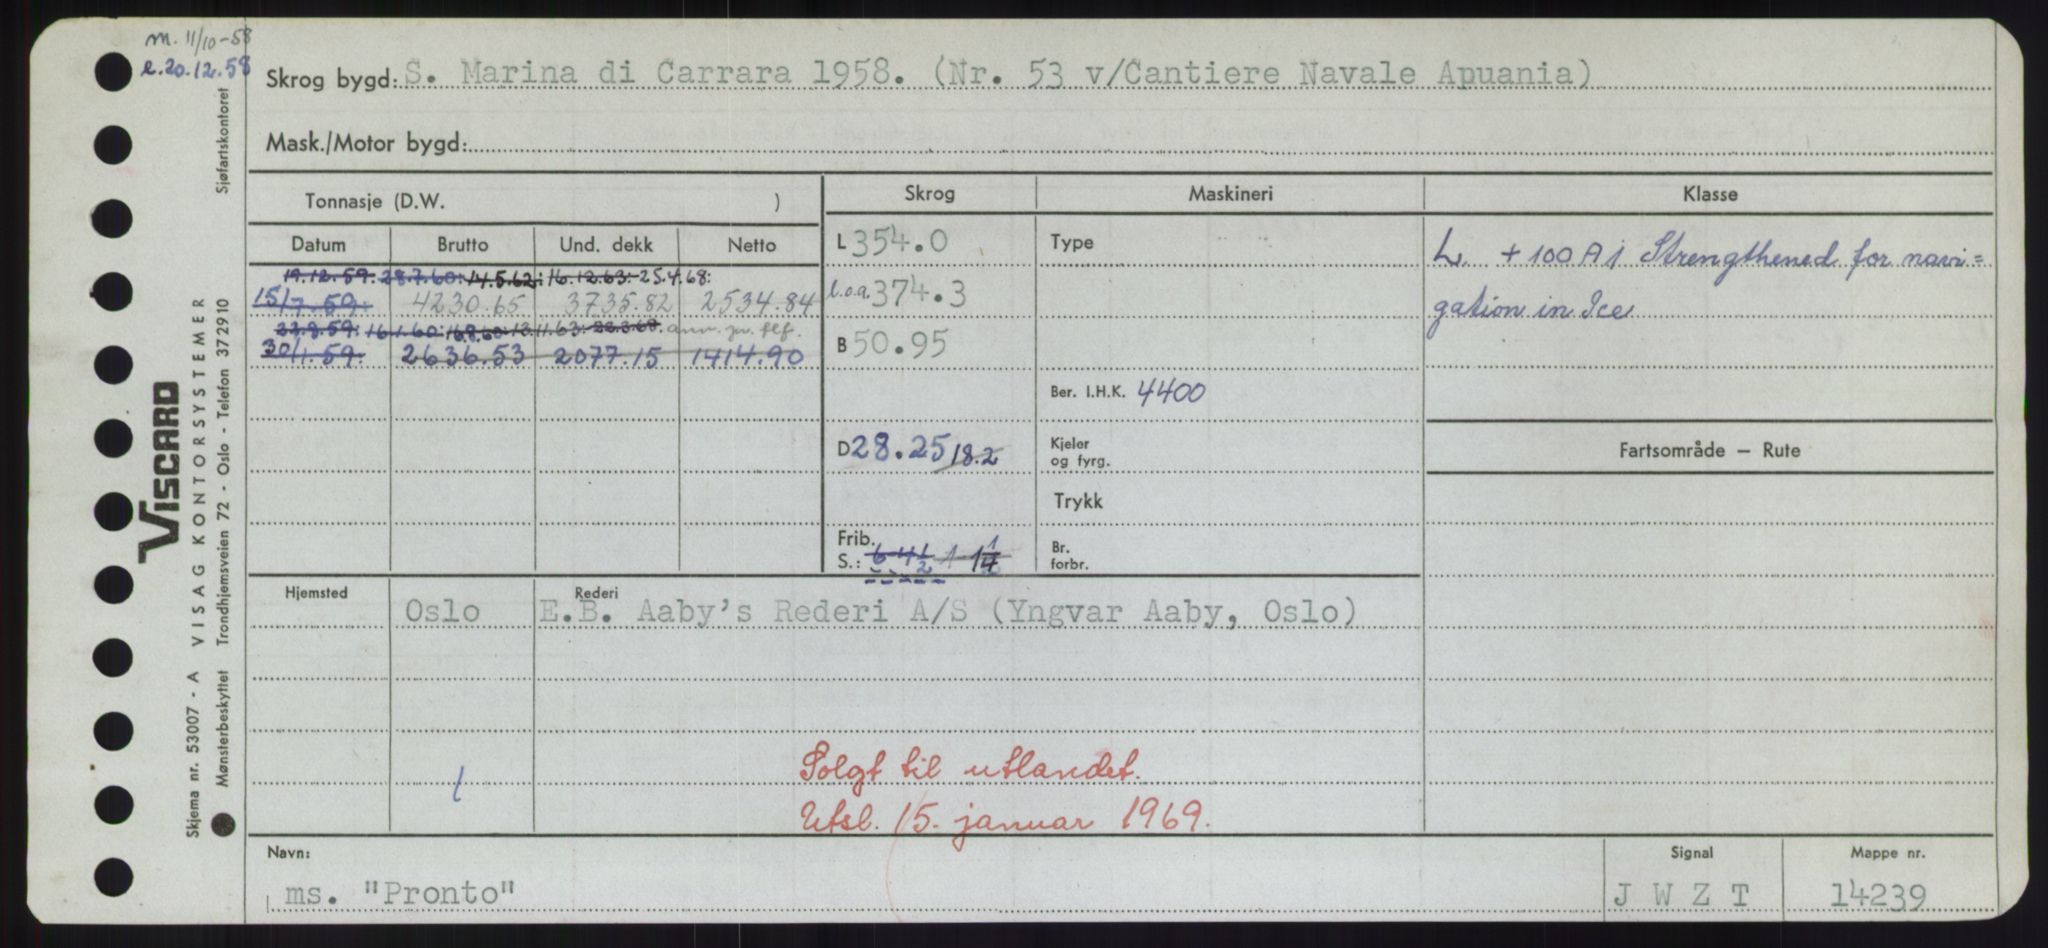 m. 11/10-58
e. 20.12.58
Skrog bygd: S. Marina di Carrara 1958. (Nr. 53 v/Cantiere Navale Apuania)
Mask./Motor bygd:
Tonnasje (D.W. )
Skrog Maskineri Klasse
Datum Brutto Und. dekk Netto
L 354.0 Type
L. + 100 A 1 Strengthened for navi=
19.12.59: 28.7.60: 14.5.62: 16.12.63: 25.4.68:
15/7.59: 4230.65 3735.82 2534.84
l.o.a. 374.3
gation in Ice
23.9.59: 16.1.60: 16.8.60: 13.11.63: 22.3.68.
30/1.59: 2636.53 2077.15 1414.90
B 50.95
Ber. I.H.K. 4400
D 28.25 18.2
Kjeler
og fyrg.
Fartsområde — Rute
Trykk
Frib.
S.: 6-4½ 1 1¼
Br.
forbr.
Hjemsted Rederi
Oslo E.B. Aaby's Rederi A/S (Yngvar Aaby, Oslo)
Solgt til utlandet.
Utsl. 15. januar 1969.
Navn: Signal Mappe nr.
ms. "Pronto" J W Z T 14239
VISCARD
Skjema nr. 53007 - A VISAG KONTORSYSTEMER
Mønsterbeskyttet Trondhjemsveien 72 - Oslo - Telefon 372910 Sjøfartskontoret